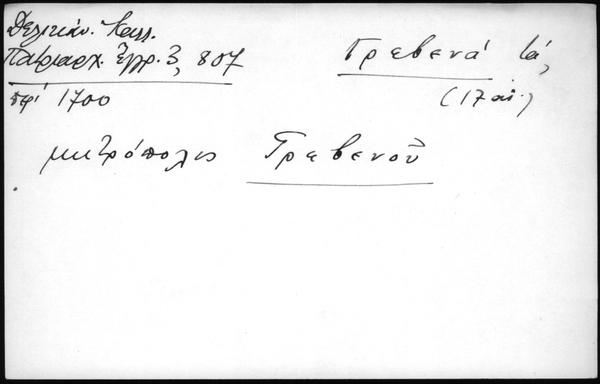 Δελικάν. Καλλ.
Πατριαρχ. Ἔγγρ. 3, 807
περὶ 1700
Γρεβενά τά,
(17 αἰ.)
μητρόπολις Γρεβενοῦ